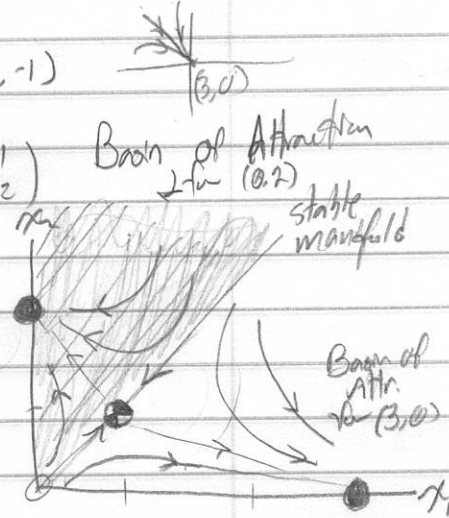 , -1)
(3,0)
Basin of Attraction
for (0,2)
stable
manifold
Basin of
Attr.
for (3,0)